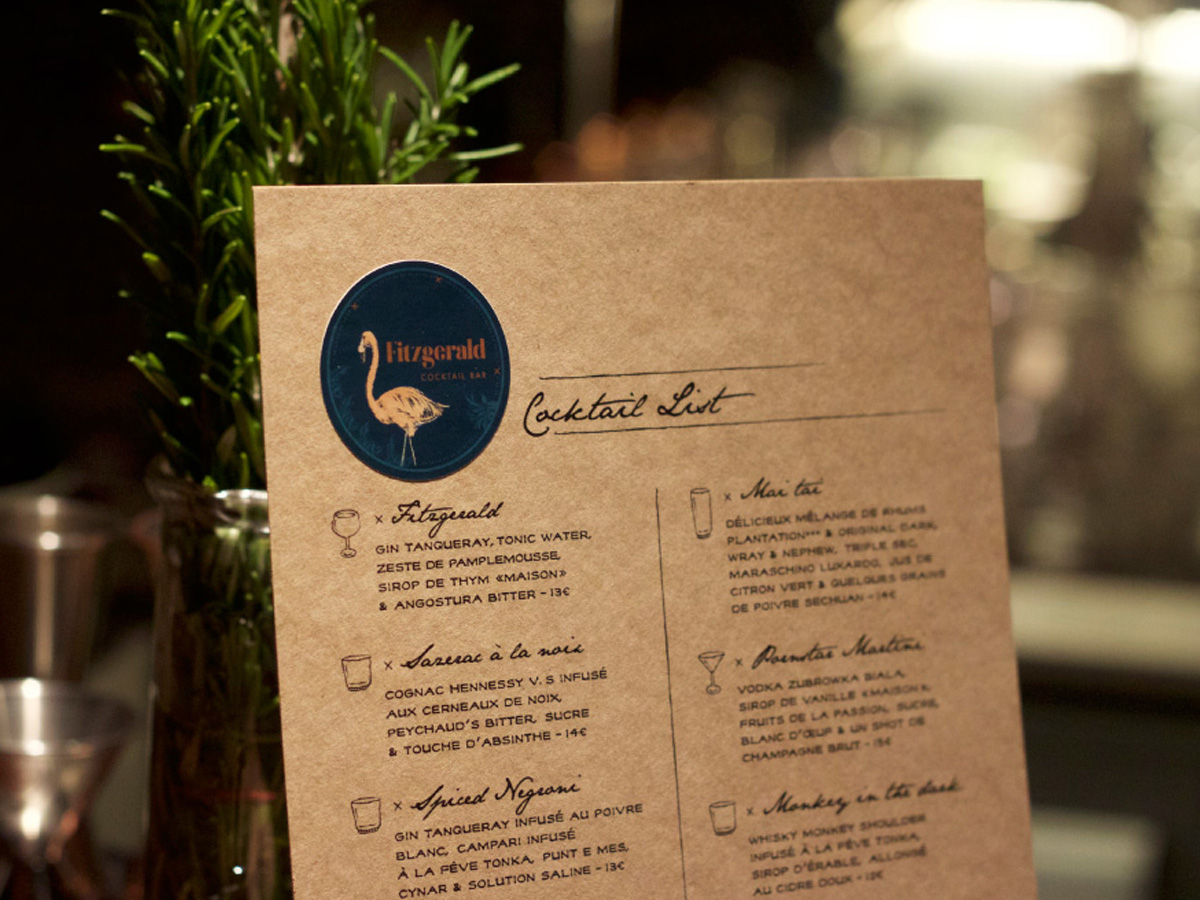 Fitzgerald
COCKTAIL BAR
Cocktail List
x Fitzgerald
GIN TANQUERAY, TONIC WATER,
ZESTE DE PAMPLEMOUSSE,
SIROP DE THYM «MAISON»
& ANGOSTURA BITTER - 13€
x Sazerac à la noix
COGNAC HENNESSY V.S INFUSÉ
AUX CERNEAUX DE NOIX,
PEYCHAUD'S BITTER, SUCRE
& TOUCHE D'ABSINTHE - 14€
x Spiced Negroni
GIN TANQUERAY INFUSÉ AU POIVRE
BLANC, CAMPARI INFUSÉ
À LA FÈVE TONKA, PUNT E MES,
CYNAR & SOLUTION SALINE - 13€
x Mai tai
DÉLICIEUX MÉLANGE DE RHUMS
PLANTATION*** & ORIGINAL DARK,
WRAY & NEPHEW, TRIPLE SEC,
MARASCHINO LUXARDO, JUS DE
CITRON VERT & QUELQUES GRAINS
DE POIVRE SECHUAN - 14€
x Pornstar Martini
VODKA ZUBROWKA BIALA,
SIROP DE VANILLE «MAISON»,
FRUITS DE LA PASSION, SUCRE,
BLANC D'ŒUF & UN SHOT DE
CHAMPAGNE BRUT -
x Monkey in the dark
WHISKY MONKEY SHOULDER
INFUSÉ À LA FÈVE TONKA,
SIROP D'ÉRABLE, ALLONGÉ
AU CIDRE DOUX -